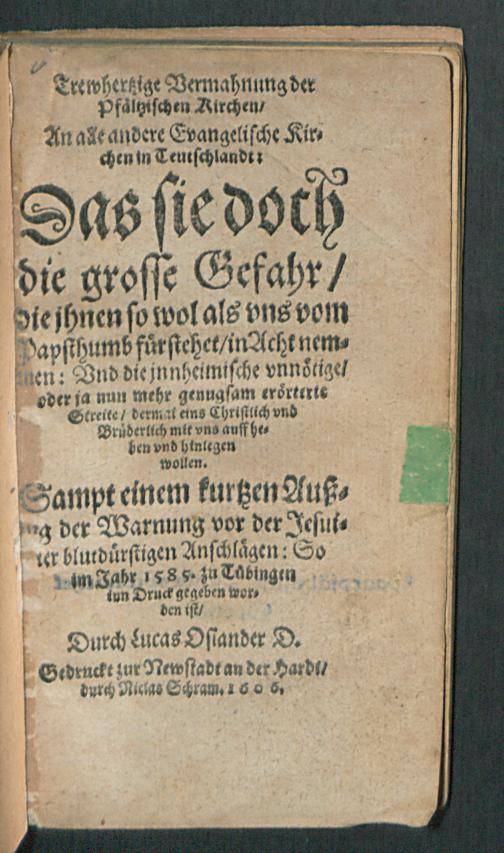 Trewhertzige Vermahnung der
Pfältzischen Kirchen/
An alle andere Evangelische Kir-
chen in Teutschlandt:
Das sie doch
die grosse Gefahr/
die jhnen so wol als vns vom
Papsthumb fürstehet/in Acht nem-
men: Vnd die jnnheimische vnnötige/
oder ja nun mehr genugsam erörterte
Streite/ dermal eins Christlich vnd
Brüderlich mit vns auff he-
ben vnd hinlegen
wollen.
Sampt einem kurtzen Auß-
ug der Warnung vor der Jesui-
ter blutdürstigen Anschlägen: So
im Jahr 1585. zu Tübingen
inn Druck gegeben wor-
den ist/
Durch Lucas Osiander D.
Gedruckt zur Newstadt an der Hardt/
durch Niclas Schram. 1606.